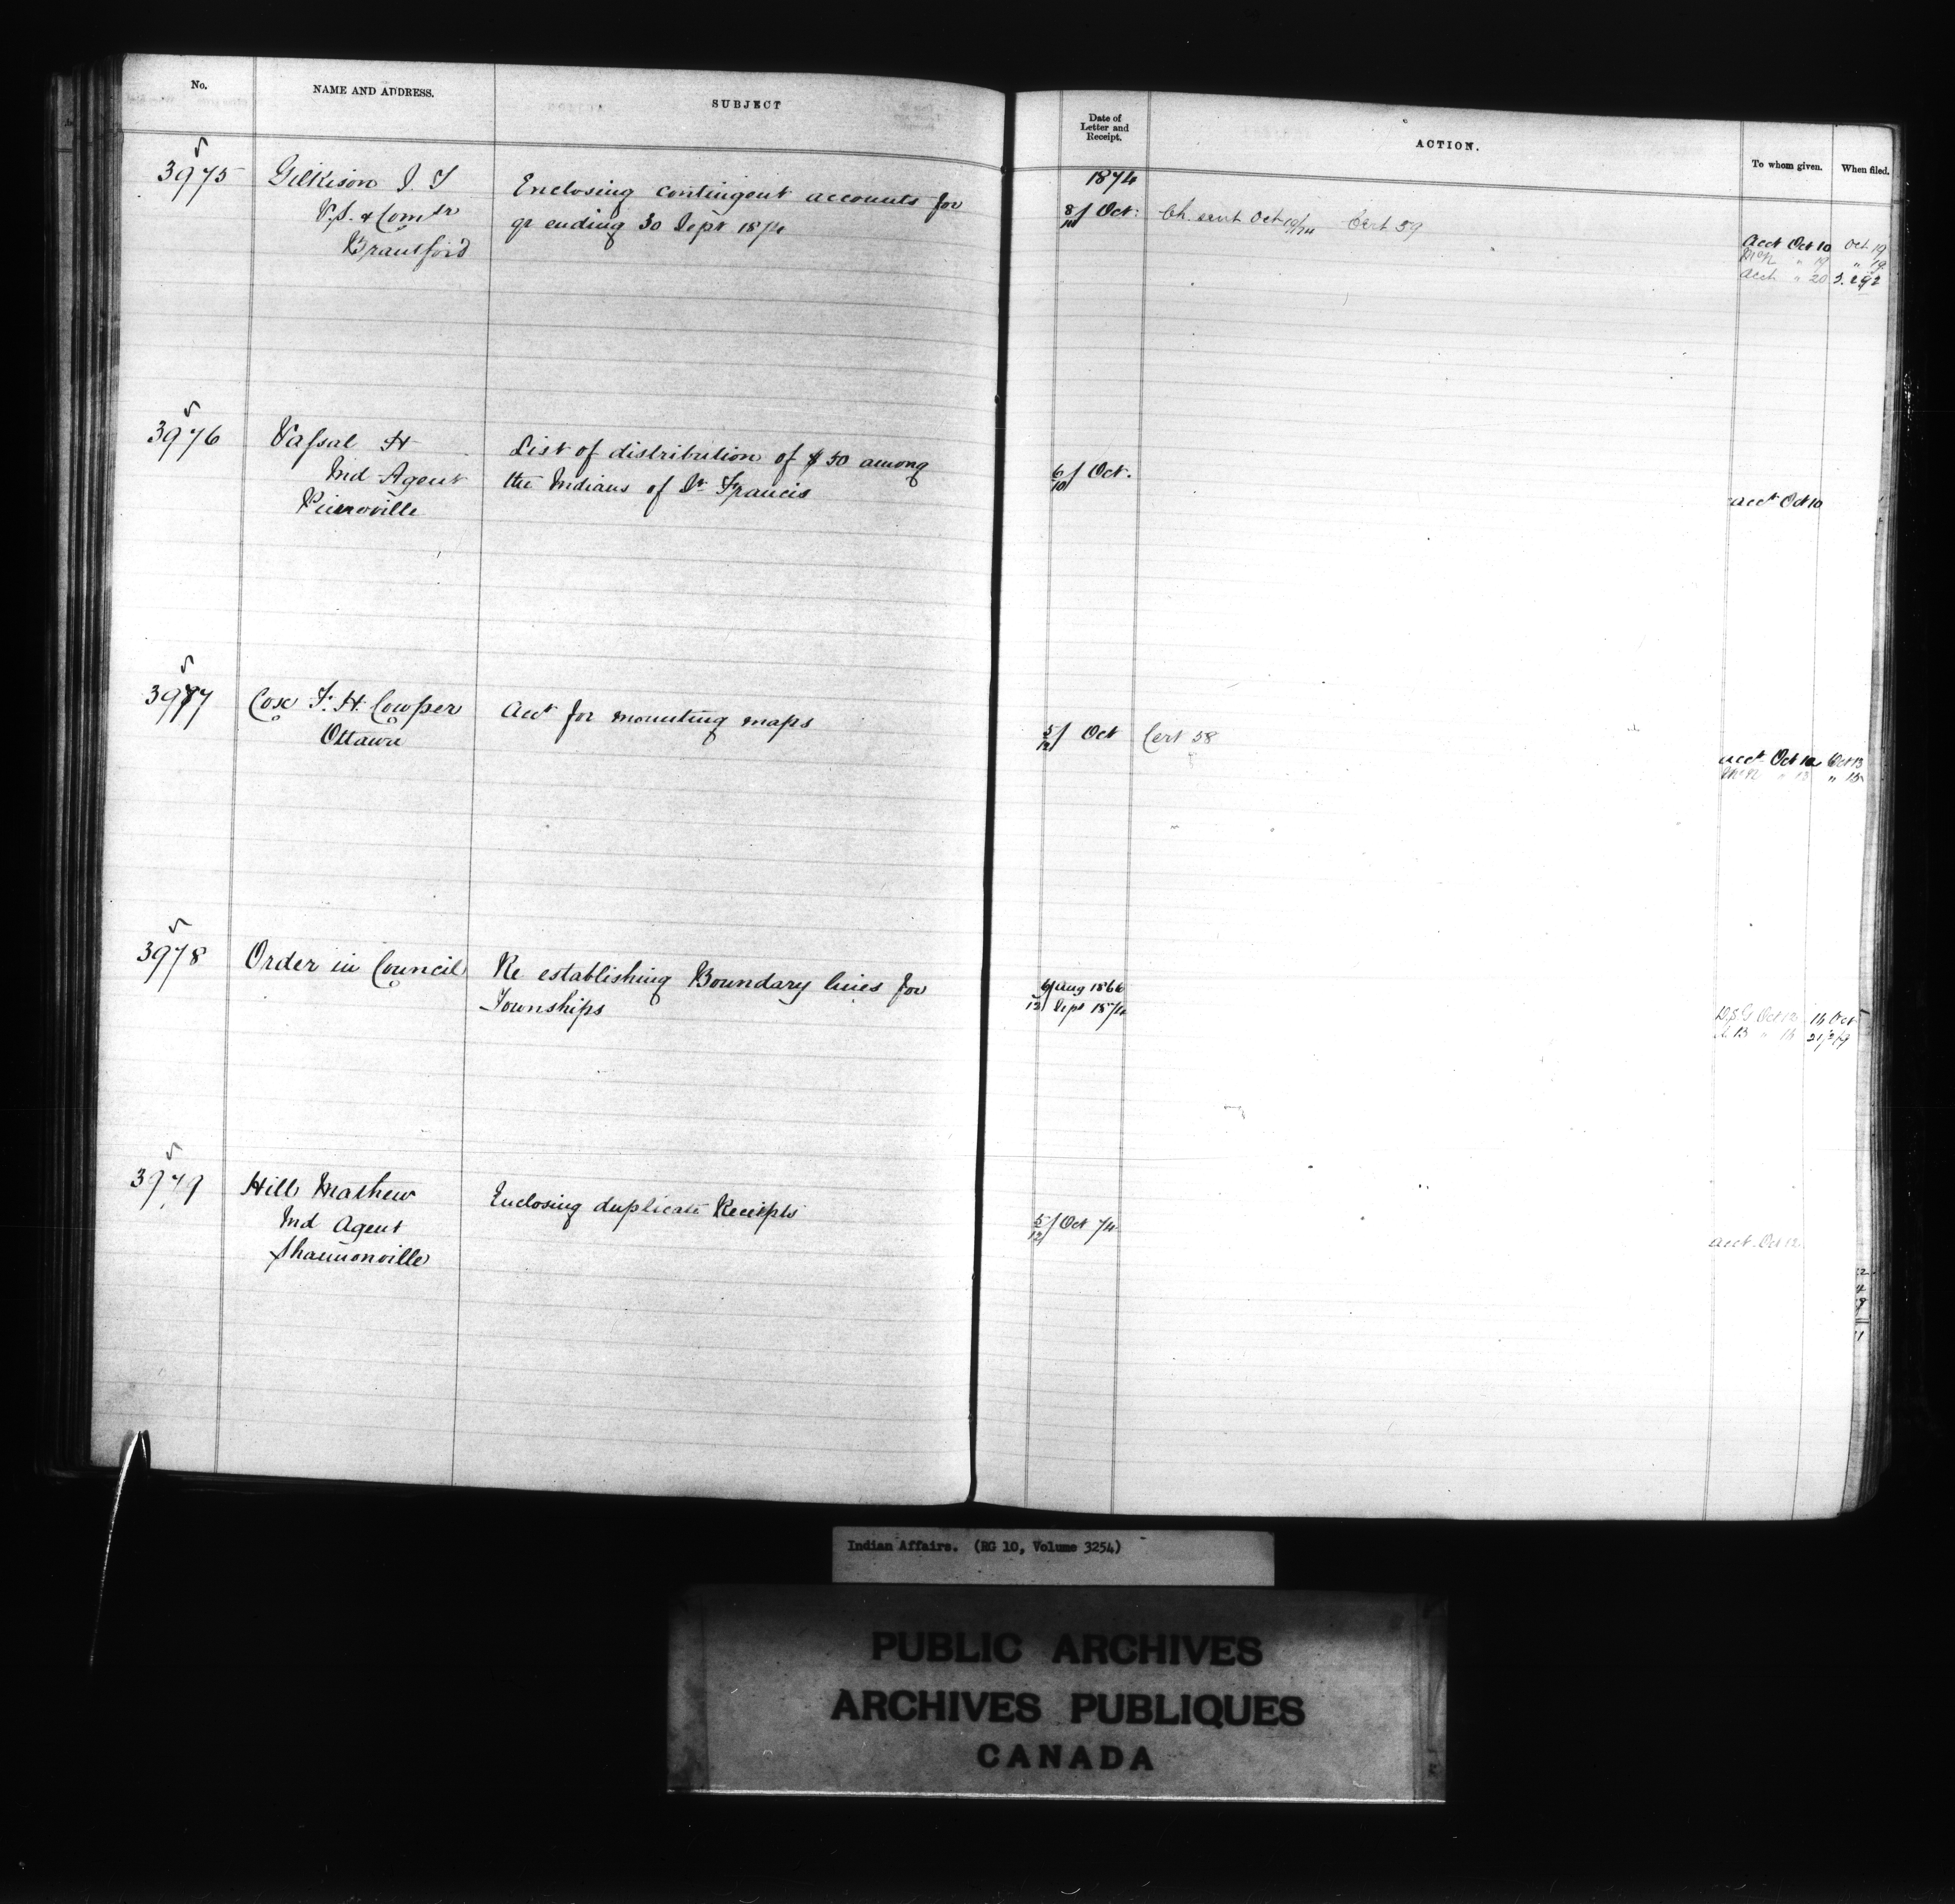 No.
NAME AND ADDRESS.
SUBJECT
Date of
Letter and
Receipt.
ACTION.
To whom given.
When filed.
1874
3975
Gilkison J T
V.S. & Comr
Brantford
Enclosing contingent accounts for
qr ending 30 Sept 1874
8/10 Oct:
Ch. sent Oct 19/74 Cert 59
Acct Oct 10 Oct 19
McN " 19 " 19
Acct " 20
3976
Vassal H
Ind Agent
Pierreville
List of distribution of $50 among
the Indians of St Francis
6/10 Oct.
acct Oct 10
3977
Cox F. H. Cowper
Ottawa
Acct for mounting maps
5/12 Oct
Cert 58
acct Oct 12 Oct 13
McN " 13 " 15
3978
Order in Council
Re establishing Boundary lines for
Townships
6/ Aug 1866
12/ Sept 1874
D.S.G Oct 12 16 Oct
3979
Hill Mathew
Ind Agent
Shannonville
Enclosing duplicate Receipts
5/12 Oct 74
acct Oct 12
Indian Affairs. (RG 10, Volume 3254)
PUBLIC ARCHIVES
ARCHIVES PUBLIQUES
CANADA